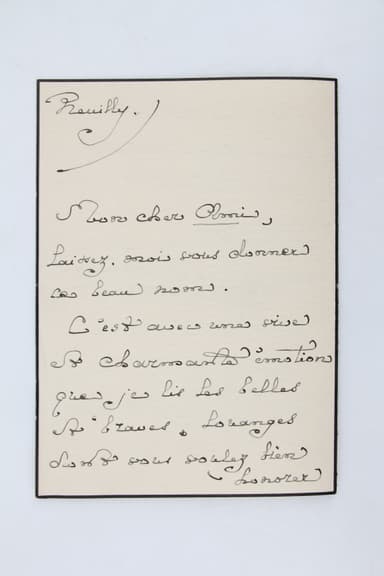 Neuilly.
Mon cher Ami,
Laissez. moi vous donner
ce beau nom.
C'est avec une vive
et charmante émotion
que je lis les belles
et braves Louanges
dont vous voulez bien
honorer